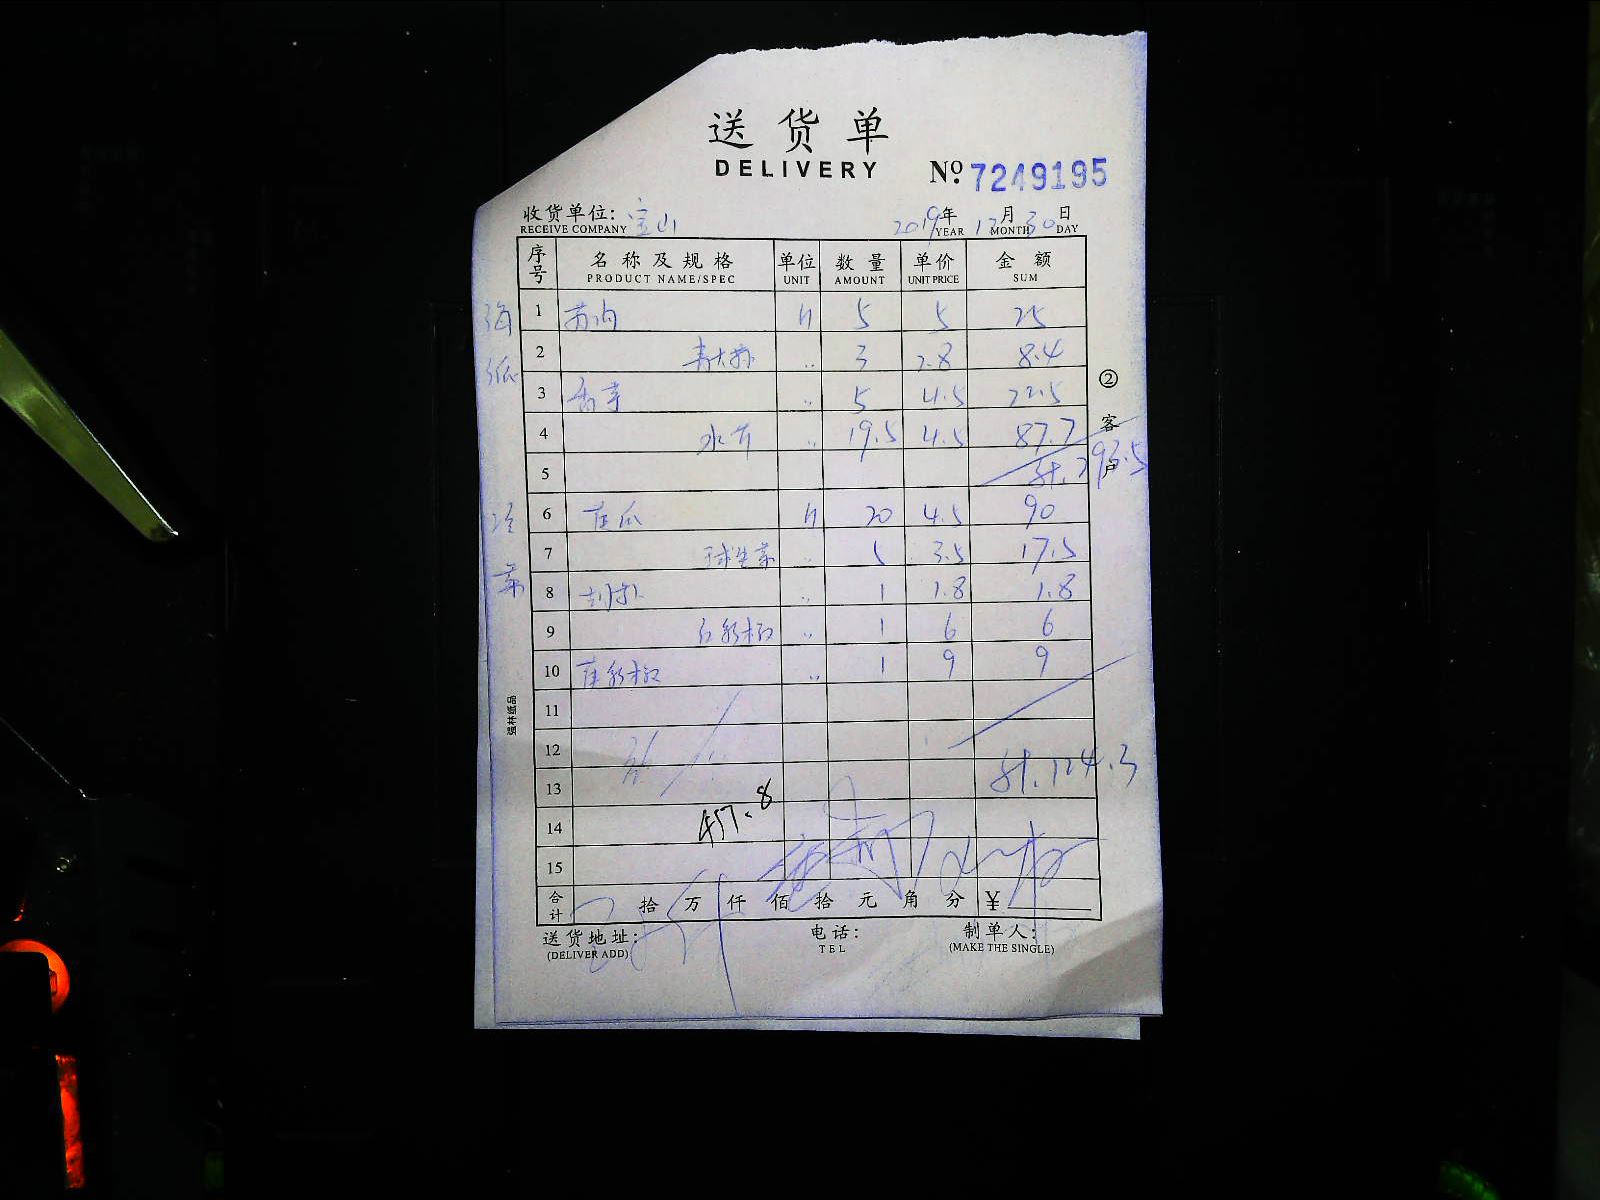 送货单
DELIVERY
No 7249195
收货单位: 宝山 2019年12月30日
RECEIVE COMPANY YEAR MONTH DAY
序号 名称及规格 单位 数量 单价 金额
PRODUCT NAME/SPEC UNIT AMOUNT UNIT PRICE SUM
1 5 5 25
2 青大 3 2.8 8.4
3 香芋 5 4.5 22.5
4 水芹 19.5 4.5 87.7
5 计. 293.5
6 瓜 20 4.5 90
7 球生菜 5 3.5 17.5
8 1 1.8 1.8
9 红彩椒 1 6 6
10 黄彩椒 1 9 9
11
12
13 计. 124.3
14 417.8
15
合计 拾 万 仟 佰 拾 元 角 分 ¥
送货地址: 电话: 制单人:
(DELIVER ADD) TEL (MAKE THE SINGLE)
②客户
强林纸品